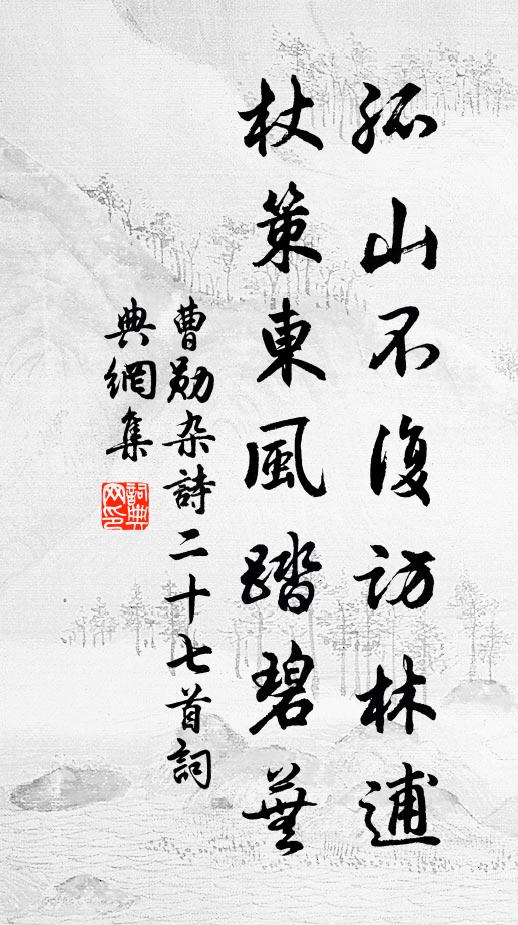 孤山不復訪林逋
杖策東風踏碧蕪
曹勛杂詩二十七首詞
典網集
詞典
网印